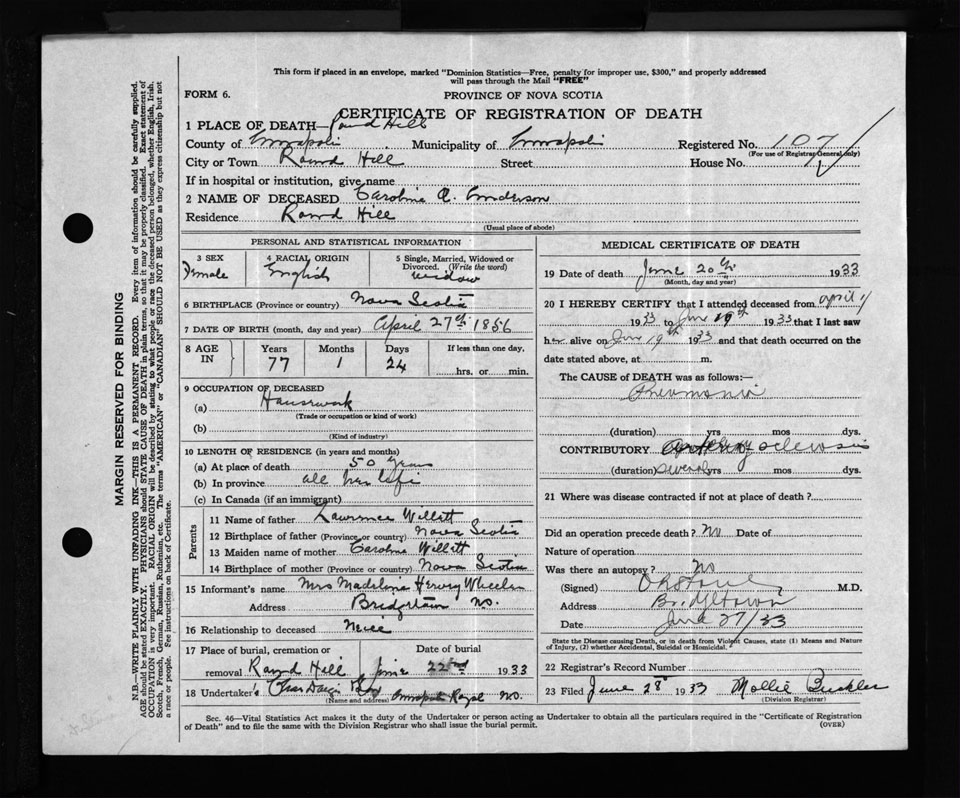 This form if placed in an envelope, marked "Dominion Statistics—Free, penalty for improper use, $300," and properly addressed
will pass through the Mail "FREE"
FORM 6.
PROVINCE OF NOVA SCOTIA
CERTIFICATE OF REGISTRATION OF DEATH
1 PLACE OF DEATH— Round Hill
County of Annapolis Municipality of Annapolis Registered No. 107
(For use of Registrar General only)
City or Town Round Hill Street House No.
If in hospital or institution, give name
2 NAME OF DECEASED Caroline A. Anderson
Residence Round Hill
(Usual place of abode)
PERSONAL AND STATISTICAL INFORMATION
3 SEX Female
4 RACIAL ORIGIN English
5 Single, Married, Widowed or Divorced. (Write the word) widow
6 BIRTHPLACE (Province or country) Nova Scotia
7 DATE OF BIRTH (month, day and year) April 27th 1856
8 AGE IN Years 77 Months 1 Days 24 If less than one day, hrs. or min.
9 OCCUPATION OF DECEASED
(a) Housework
(Trade or occupation or kind of work)
(b)
(Kind of industry)
10 LENGTH OF RESIDENCE (in years and months)
(a) At place of death 50 years
(b) In province all her life
(c) In Canada (if an immigrant)
Parents
11 Name of father Lawrence Willett
12 Birthplace of father (Province or country) Nova Scotia
13 Maiden name of mother Caroline Willett
14 Birthplace of mother (Province or country) Nova Scotia
15 Informant's name Mrs Madeline Hervey Wheeler
Address Bridgetown N.S.
16 Relationship to deceased Niece
17 Place of burial, cremation or removal Round Hill Date of burial June 22nd 1933
18 Undertaker's Annapolis Royal N.S.
(Name and address)
MEDICAL CERTIFICATE OF DEATH
19 Date of death June 20th 1933
(Month, day and year)
20 I HEREBY CERTIFY that I attended deceased from April
1933 to June 19th 1933 that I last saw
her alive on June 19th 1933 and that death occurred on the
date stated above, at m.
The CAUSE OF DEATH was as follows:—
Pneumonia
(duration) yrs mos dys.
CONTRIBUTORY
(duration) Several yrs. mos. dys.
21 Where was disease contracted if not at place of death?
Did an operation precede death? No Date of
Nature of operation
Was there an autopsy? No
(Signed) M.D.
Address Bridgetown
Date June 27/33
State the Disease causing Death, or in death from Violent Causes, state (1) Means and Nature
of Injury, (2) whether Accidental, Suicidal or Homicidal.
22 Registrar's Record Number
23 Filed June 28 1933 Mollie Buckler
(Division Registrar)
Sec. 46—Vital Statistics Act makes it the duty of the Undertaker or person acting as Undertaker to obtain all the particulars required in the "Certificate of Registration
of Death" and to file the same with the Division Registrar who shall issue the burial permit. (OVER)
MARGIN RESERVED FOR BINDING
N.B.—WRITE PLAINLY WITH UNFADING INK—THIS IS A PERMANENT RECORD. Every item of information should be carefully supplied.
AGE should be stated EXACTLY. PHYSICIANS should STATE CAUSE OF DEATH in plain terms, so that it may be properly classified. Exact statement of
OCCUPATION is very important. RACIAL ORIGIN will be described by stating to what people or race the deceased person belonged, whether English, Irish,
Scotch, French, German, Russian, Ruthenian, etc. The terms "AMERICAN" or "CANADIAN" SHOULD NOT BE USED as they express citizenship but not
a race or people. See instructions on back of Certificate.